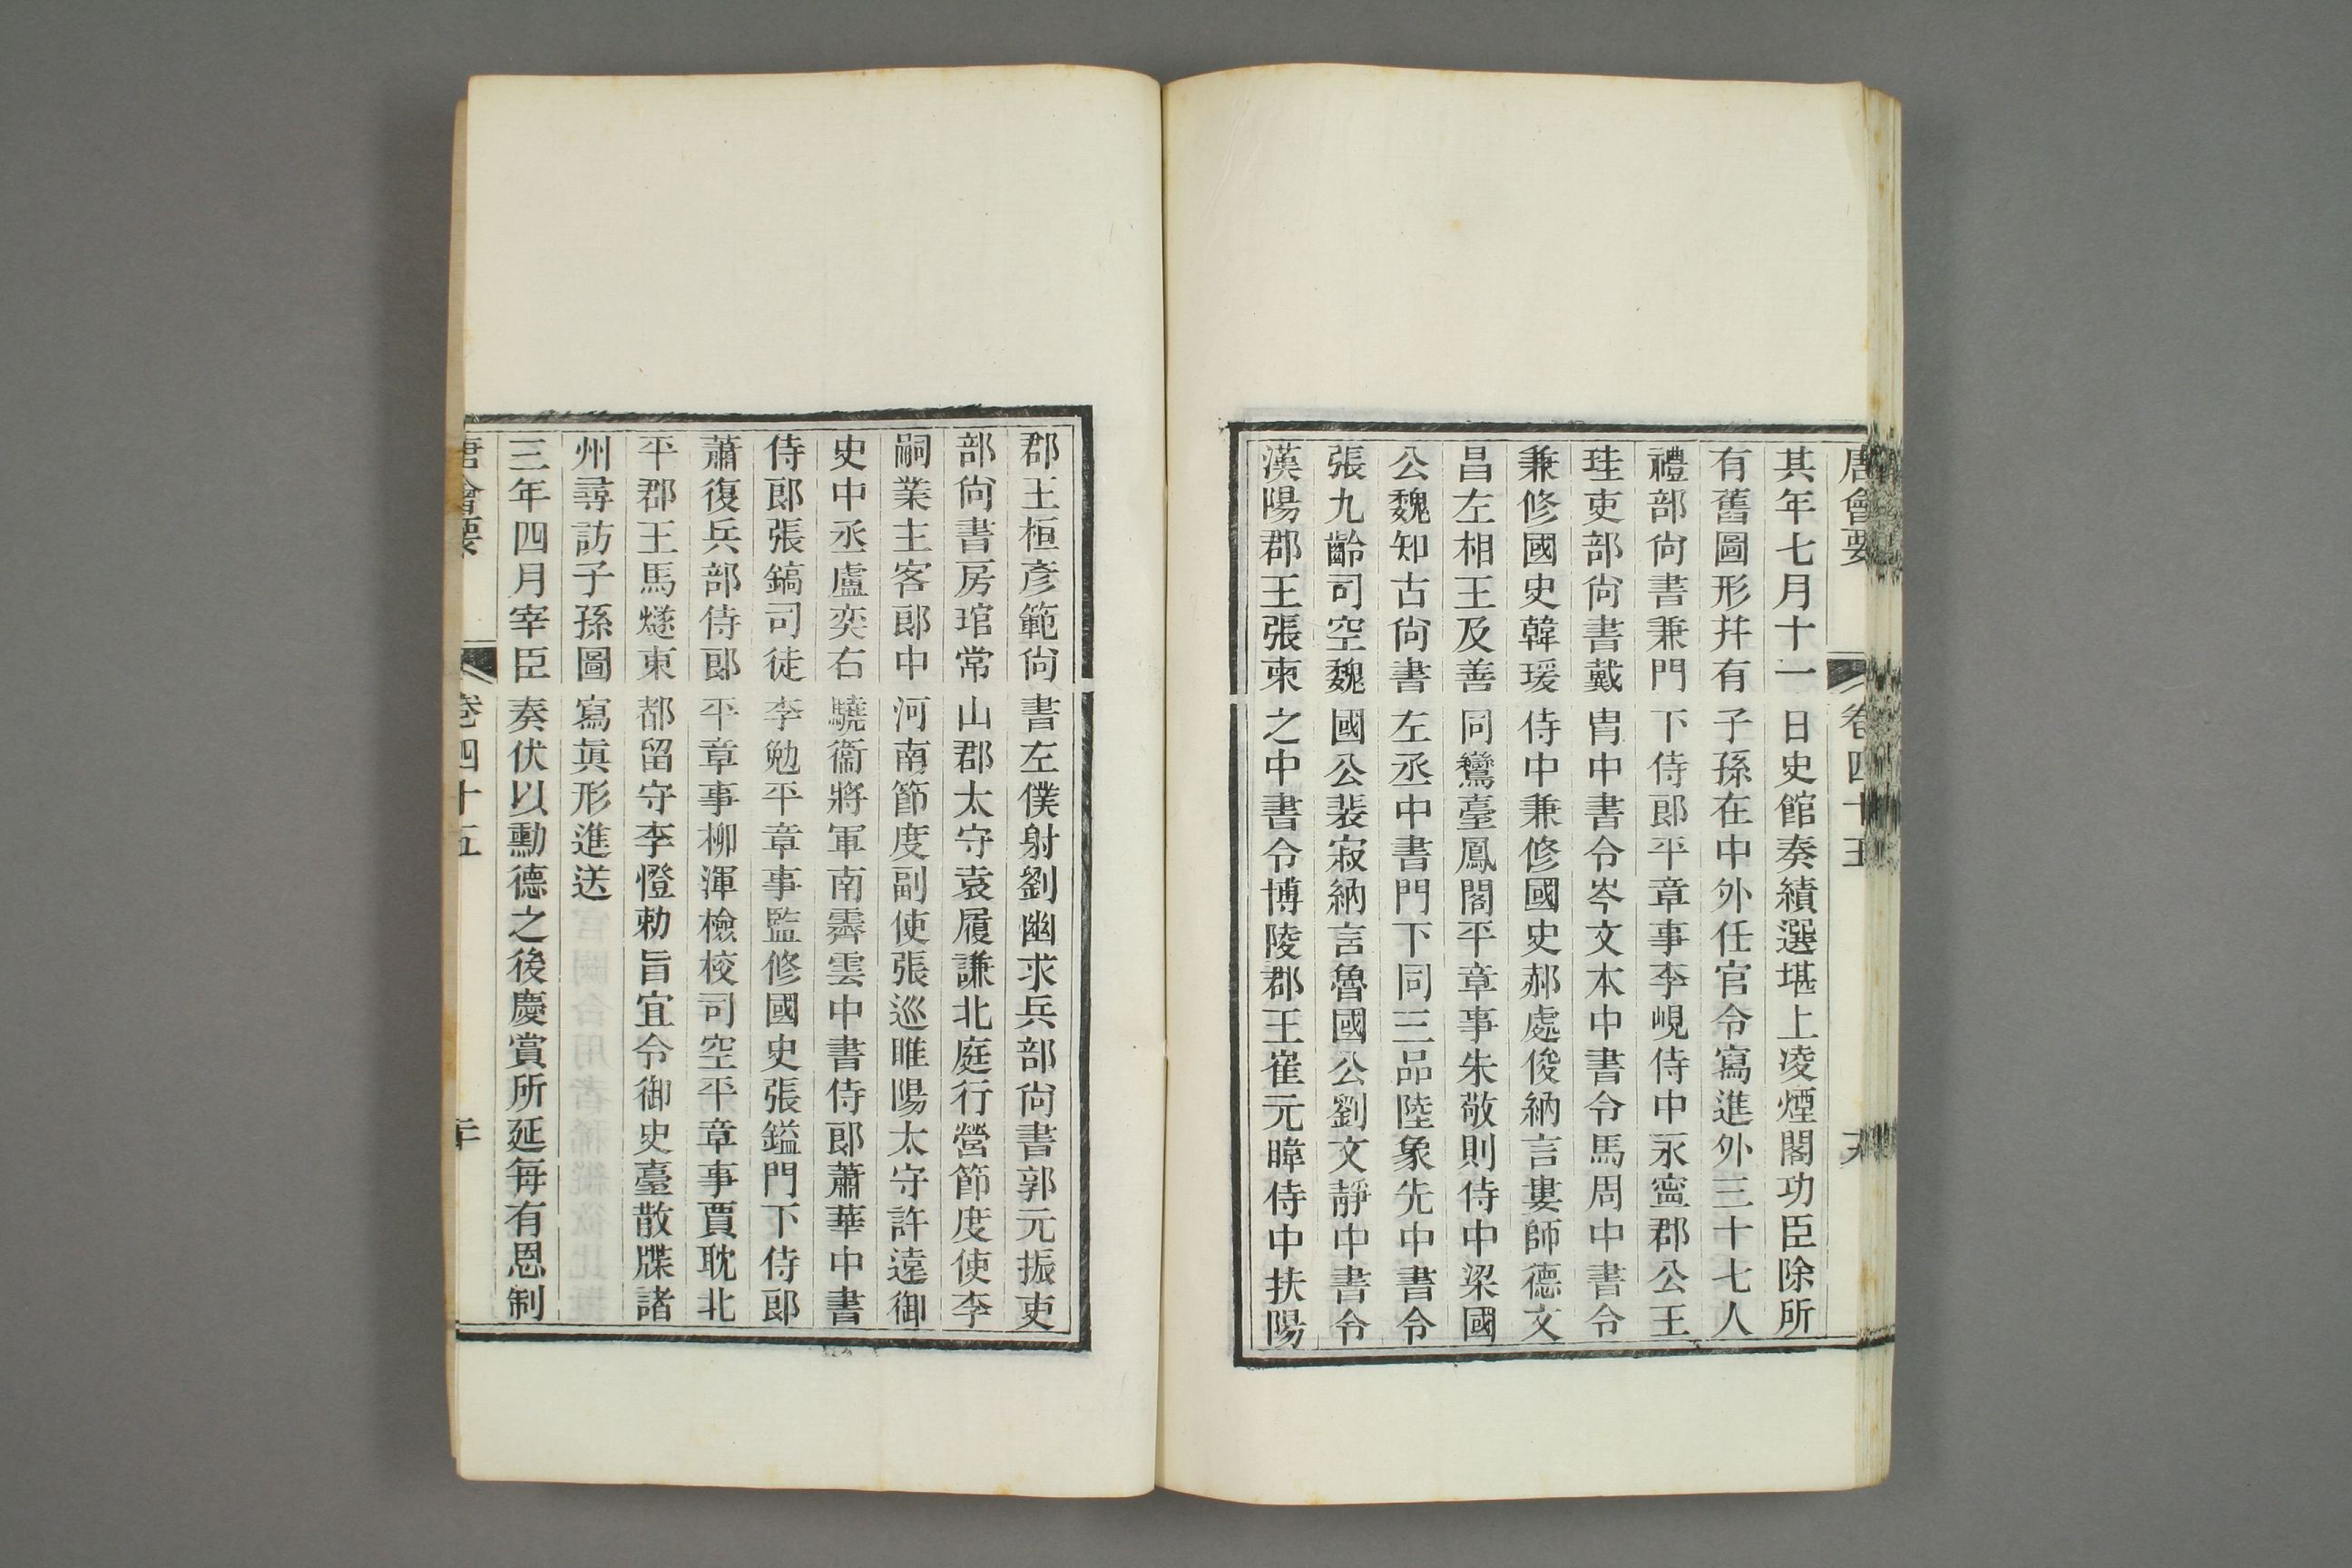 唐會要 卷四十五
其年七月十一日史館奏續選堪上凌煙閣功臣除所
有舊圖形幷有子孫在中外任官令寫進外三十七人
禮部尙書兼門下侍郎平章事李峴侍中永寧郡公王
珪吏部尙書戴胄中書令岑文本中書令馬周中書令
兼修國史韓瑗侍中兼修國史郝處俊納言婁師德文
昌左相王及善同鸞臺鳳閣平章事朱敬則侍中梁國
公魏知古尙書左丞中書門下同三品陸象先中書令
張九齡司空魏國公裴寂納言魯國公劉文靜中書令
漢陽郡王張柬之中書令博陵郡王崔元暐侍中扶陽
郡王桓彥範尙書左僕射劉幽求兵部尙書郭元振吏
部尙書房琯常山郡太守袁履謙北庭行營節度使李
嗣業主客郎中河南節度副使張巡睢陽太守許遠御
史中丞盧奕右驍衞將軍南霽雲中書侍郎蕭華中書
侍郎張鎬司徒李勉平章事監修國史張鎰門下侍郎
蕭復兵部侍郎平章事柳渾檢校司空平章事賈耽北
平郡王馬燧東都留守李憕勅旨宜令御史臺散牒諸
州尋訪子孫圖寫眞形進送
三年四月宰臣奏伏以勳德之後慶賞所延每有恩制
唐會要 卷四十五